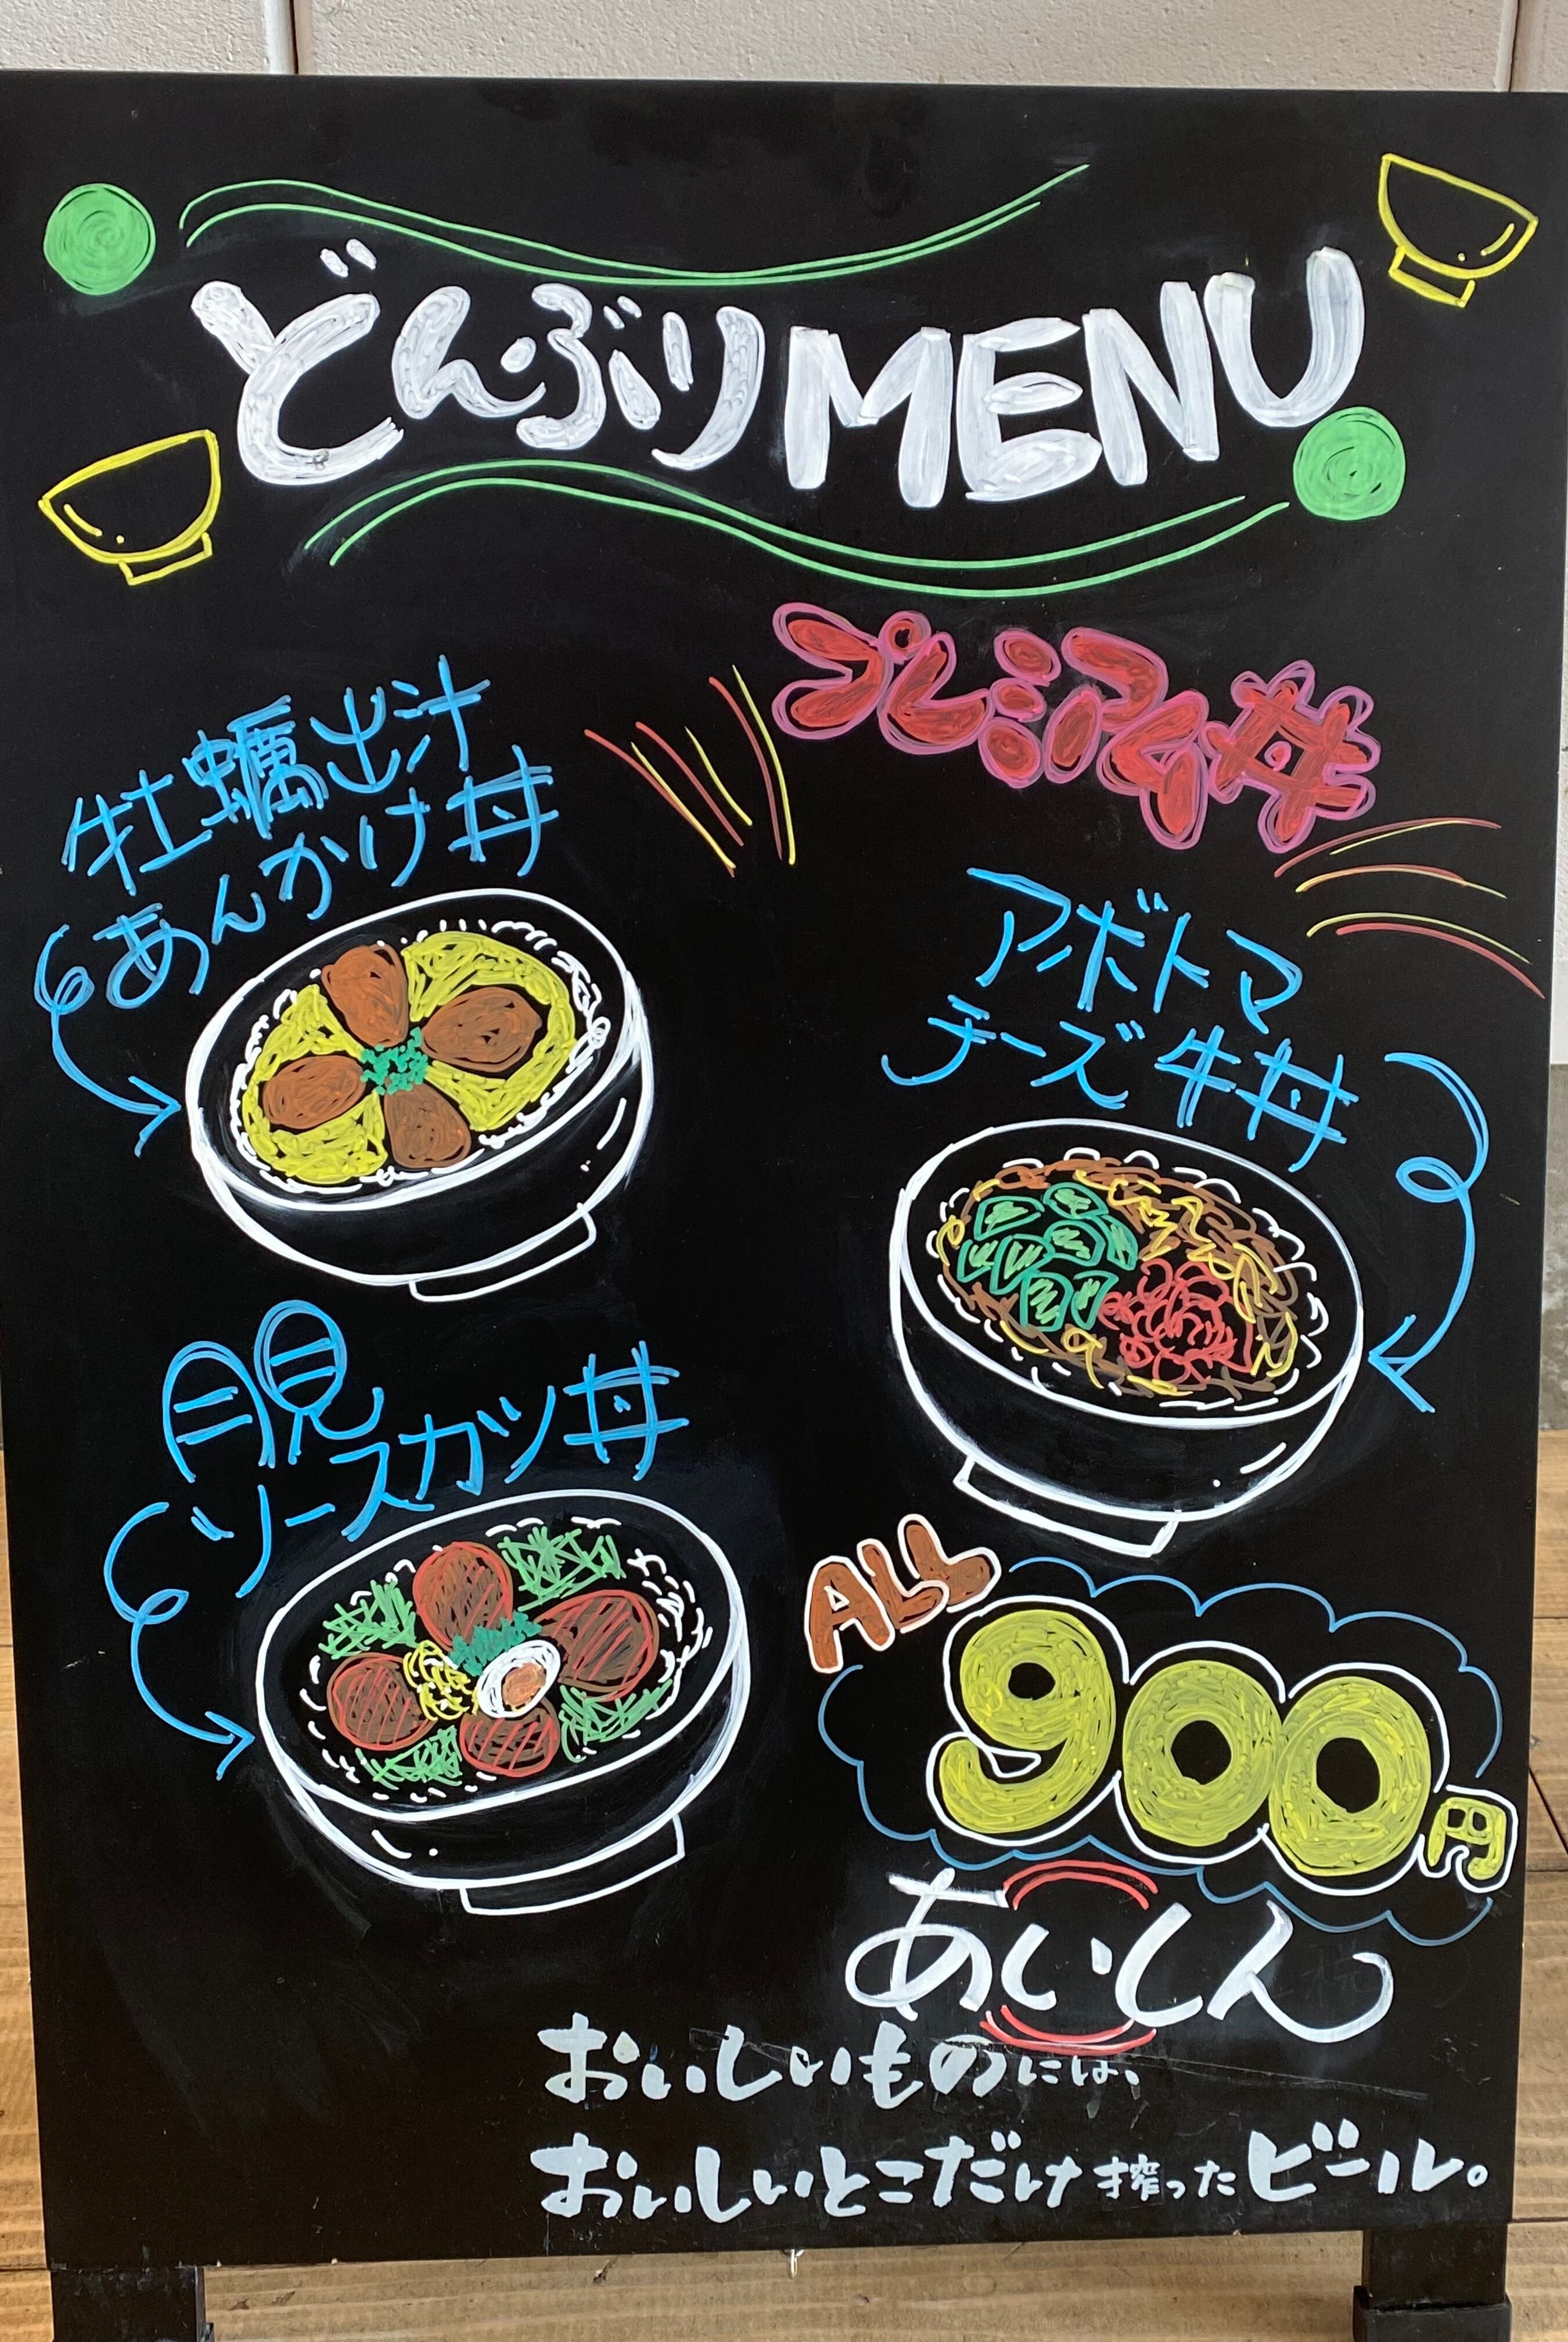 どんぶりMENU
プレミアム丼
牡蠣出汁
あんかけ丼
アボトマ
チーズ牛丼
月見
ソースカツ丼
ALL
900円
あいしん
おいしいものには、
おいしいとこだけ搾ったビール。